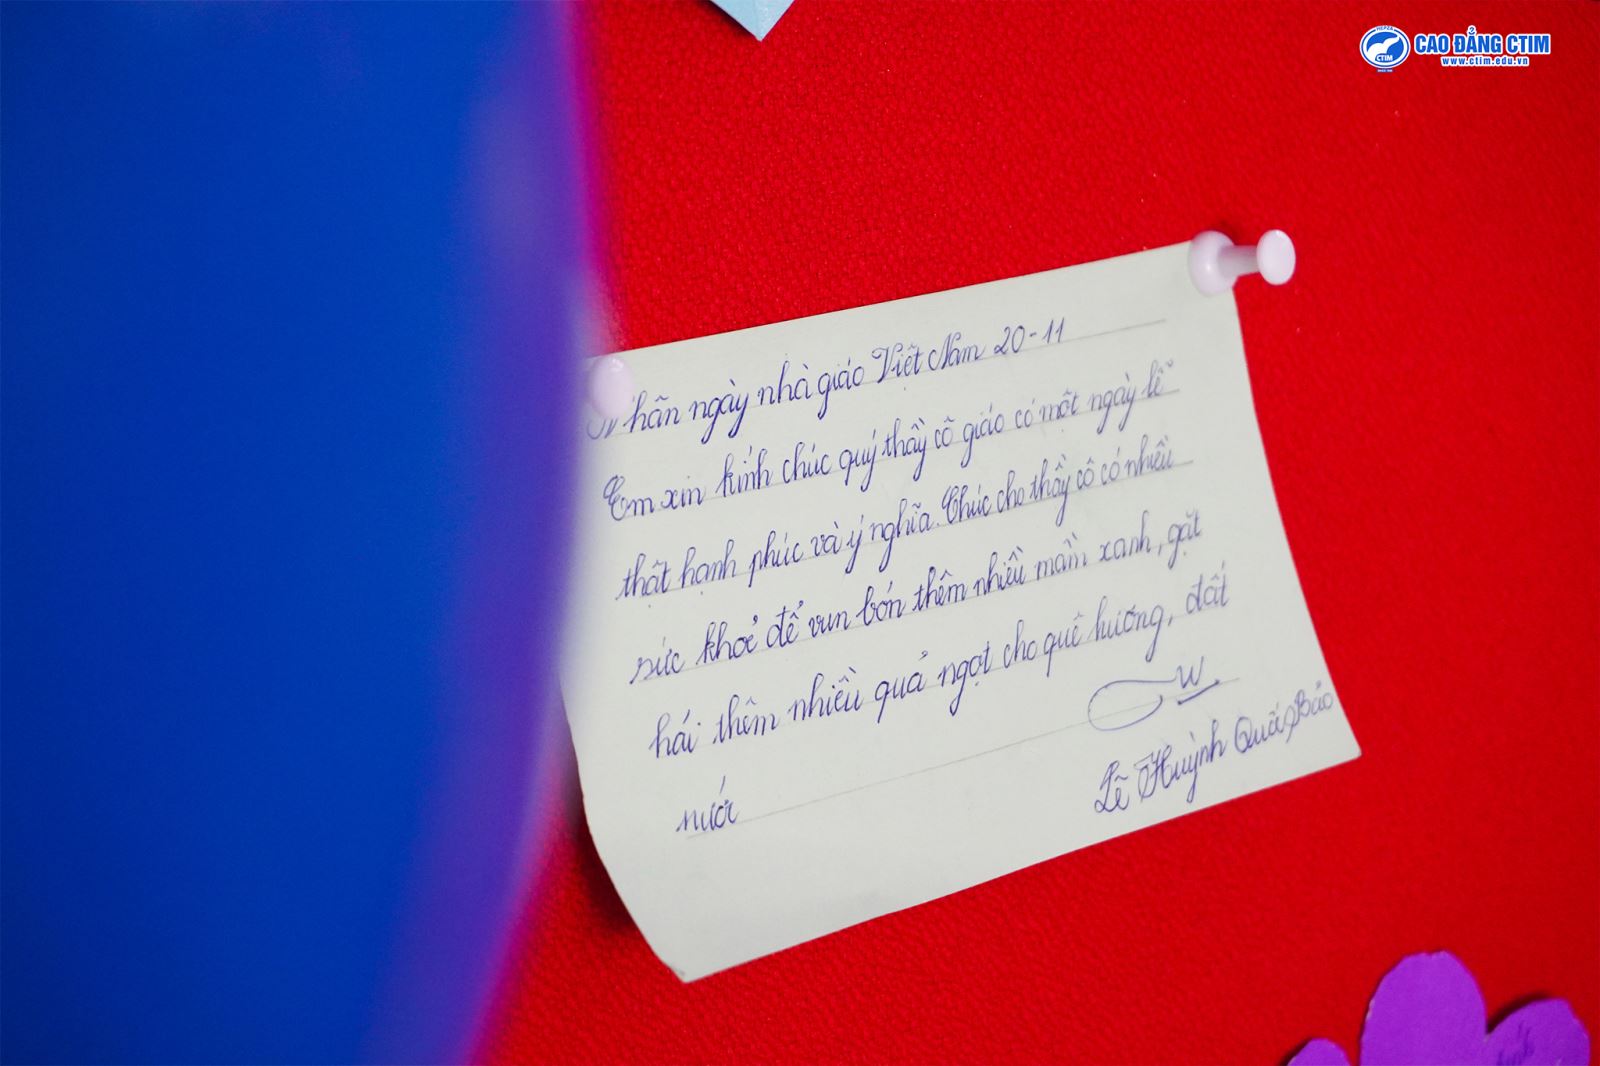 CAO ĐẲNG CTIM
www.ctim.edu.vn
CTIM
Nhân ngày nhà giáo Việt Nam 20-11
Em xin kính chúc quý thầy cô giáo có một ngày lễ
thật hạnh phúc và ý nghĩa. Chúc cho thầy cô có nhiều
sức khoẻ để vun bón thêm nhiều mầm xanh, gặt
hái thêm nhiều quả ngọt cho quê hương, đất
nước
Lê Huỳnh Quốc Bảo